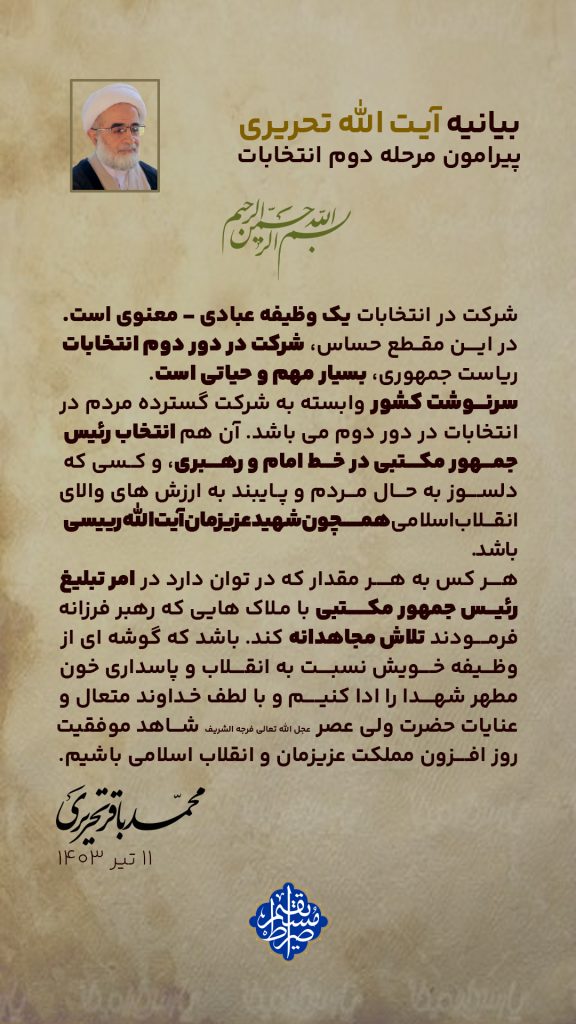 بیانیه آیت الله تحریری
پیرامون مرحله دوم انتخابات
بسم الله الرحمن الرحیم
شرکت در انتخابات یک وظیفه عبادی - معنوی است.
در ایـن مقـطع حساس، شرکت در دور دوم انتخابات
ریاست جمهوری، بسیار مهم و حیاتی است.
سرنـوشت کشور وابسته به شرکت گسترده مردم در
انتخابات در دور دوم می باشد. آن هم انتخاب رئیس
جمـهور مکـتبی در خـط امام و رهـبری، و کـسی که
دلسـوز به حـال مـردم و پـایبند به ارزش های والای
انقـلاب اسلامی همـچون شهید عزیزمان آیت الله رییسی
باشد.
هـر کس به هـر مقدار که در توان دارد در امر تبلیغ
رئیـس جمهور مکـتبی با ملاک هایی که رهبر فرزانه
فرمـودند تلاش مجاهدانه کند. باشد که گوشه ای از
وظـیفه خـویش نسبـت به انقـلاب و پاسداری خون
مطهر شهـدا را ادا کنیـم و با لطف خداوند متعال و
عنایات حضرت ولی عصر عجل الله تعالی فرجه الشریف شـاهد موفقیت
روز افـزون مملکت عزیزمان و انقلاب اسلامی باشیم.
محمدباقر تحریری
۱۱ تیر ۱۴۰۳
صراط مستقیم